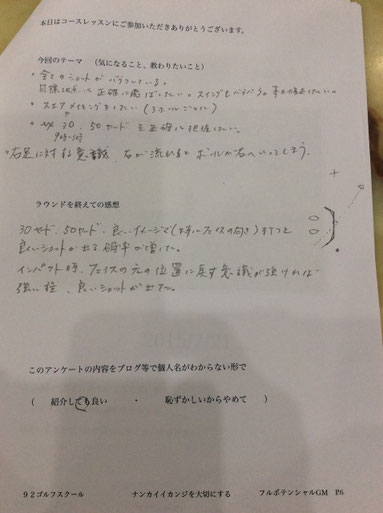 本日はコースレッスンにご参加いただきありがとうございます。
今回のテーマ　（気になること、教わりたいこと）
・全てのショットがバラツいている。
目標地点に正確に飛ばしたい。スイングもバラバラ。
・スコアメイキングをしたい（3ホールごとに）
30、50ヤードを正確に把握したい。
9時-3時
・右足に対する意識、右が流れるとボールが右へいってしまう。
ラウンドを終えての感想
30ヤード、50ヤード、良いイメージで（特にフェイスの向き）を打つと
良いショットが出る確率が増した。
インパクト時、フェイスの元の位置に戻す意識が強ければ
強い程、良いショットが出た。
このアンケートの内容をブログ等で個人名がわからない形で
（　紹介しても良い　・　恥ずかしいからやめて　）
９２ゴルフスクール　ナンカイイカンジを大切にする　フルポテンシャルGM　P.6